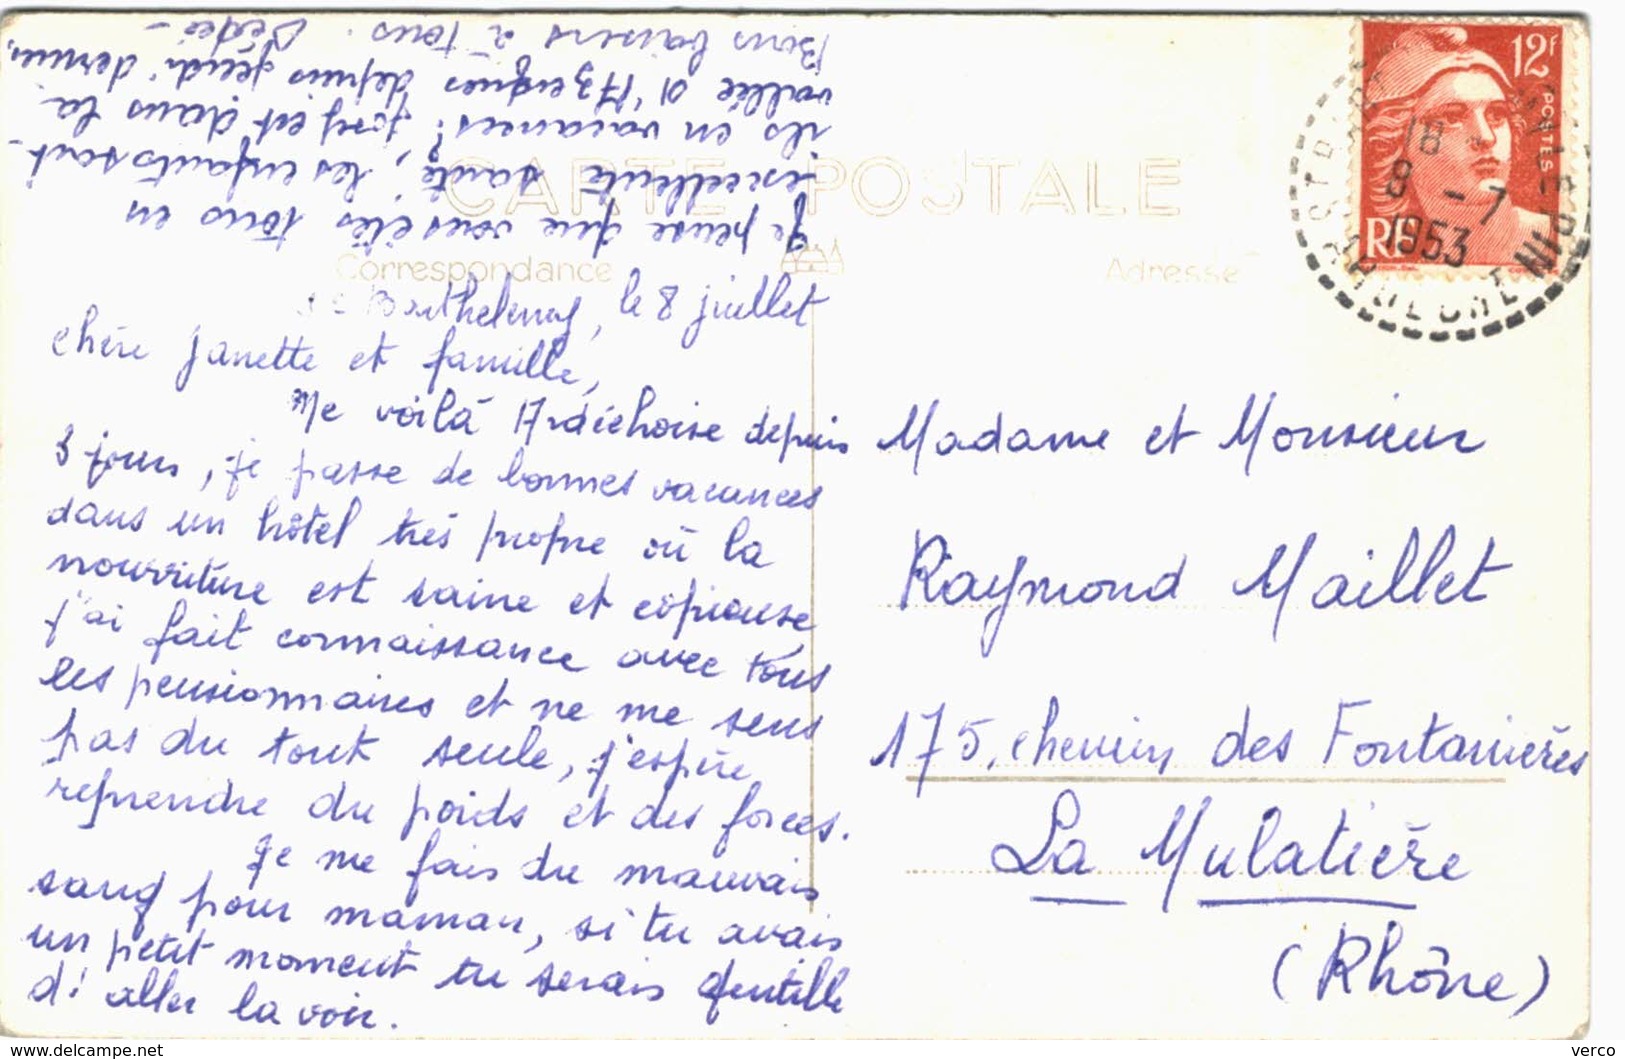 CARTE POSTALE
Correspondance
Adresse
12F
POSTES
RF
18 -
8 - 7
1953
ARDECHE
St Barthelemy, le 8 juillet
chère Janette et famille,
Me voilà Ardéchoise depuis
3 jours, je passe de bonnes vacances
dans un hôtel très propre où la
nourriture est saine et copieuse,
j'ai fait connaissance avec tous
les pensionnaires et ne me sens
pas du tout seule, j'espère
reprendre du poids et des forces.
Je me fais du mauvais
sang pour maman, si tu avais
un petit moment tu serais gentille
d'aller la voir.
Je pense que vous êtes tous en
excellente santé, les enfants sont-
ils en vacances? Josef est dans la
vallée d'Azergues depuis jeudi dernier,
Bons baisers à tous.
Madame et Monsieur
Raymond Maillet
175, chemin des Fontanières
La Mulatière
(Rhône)
verco
www.delcampe.net